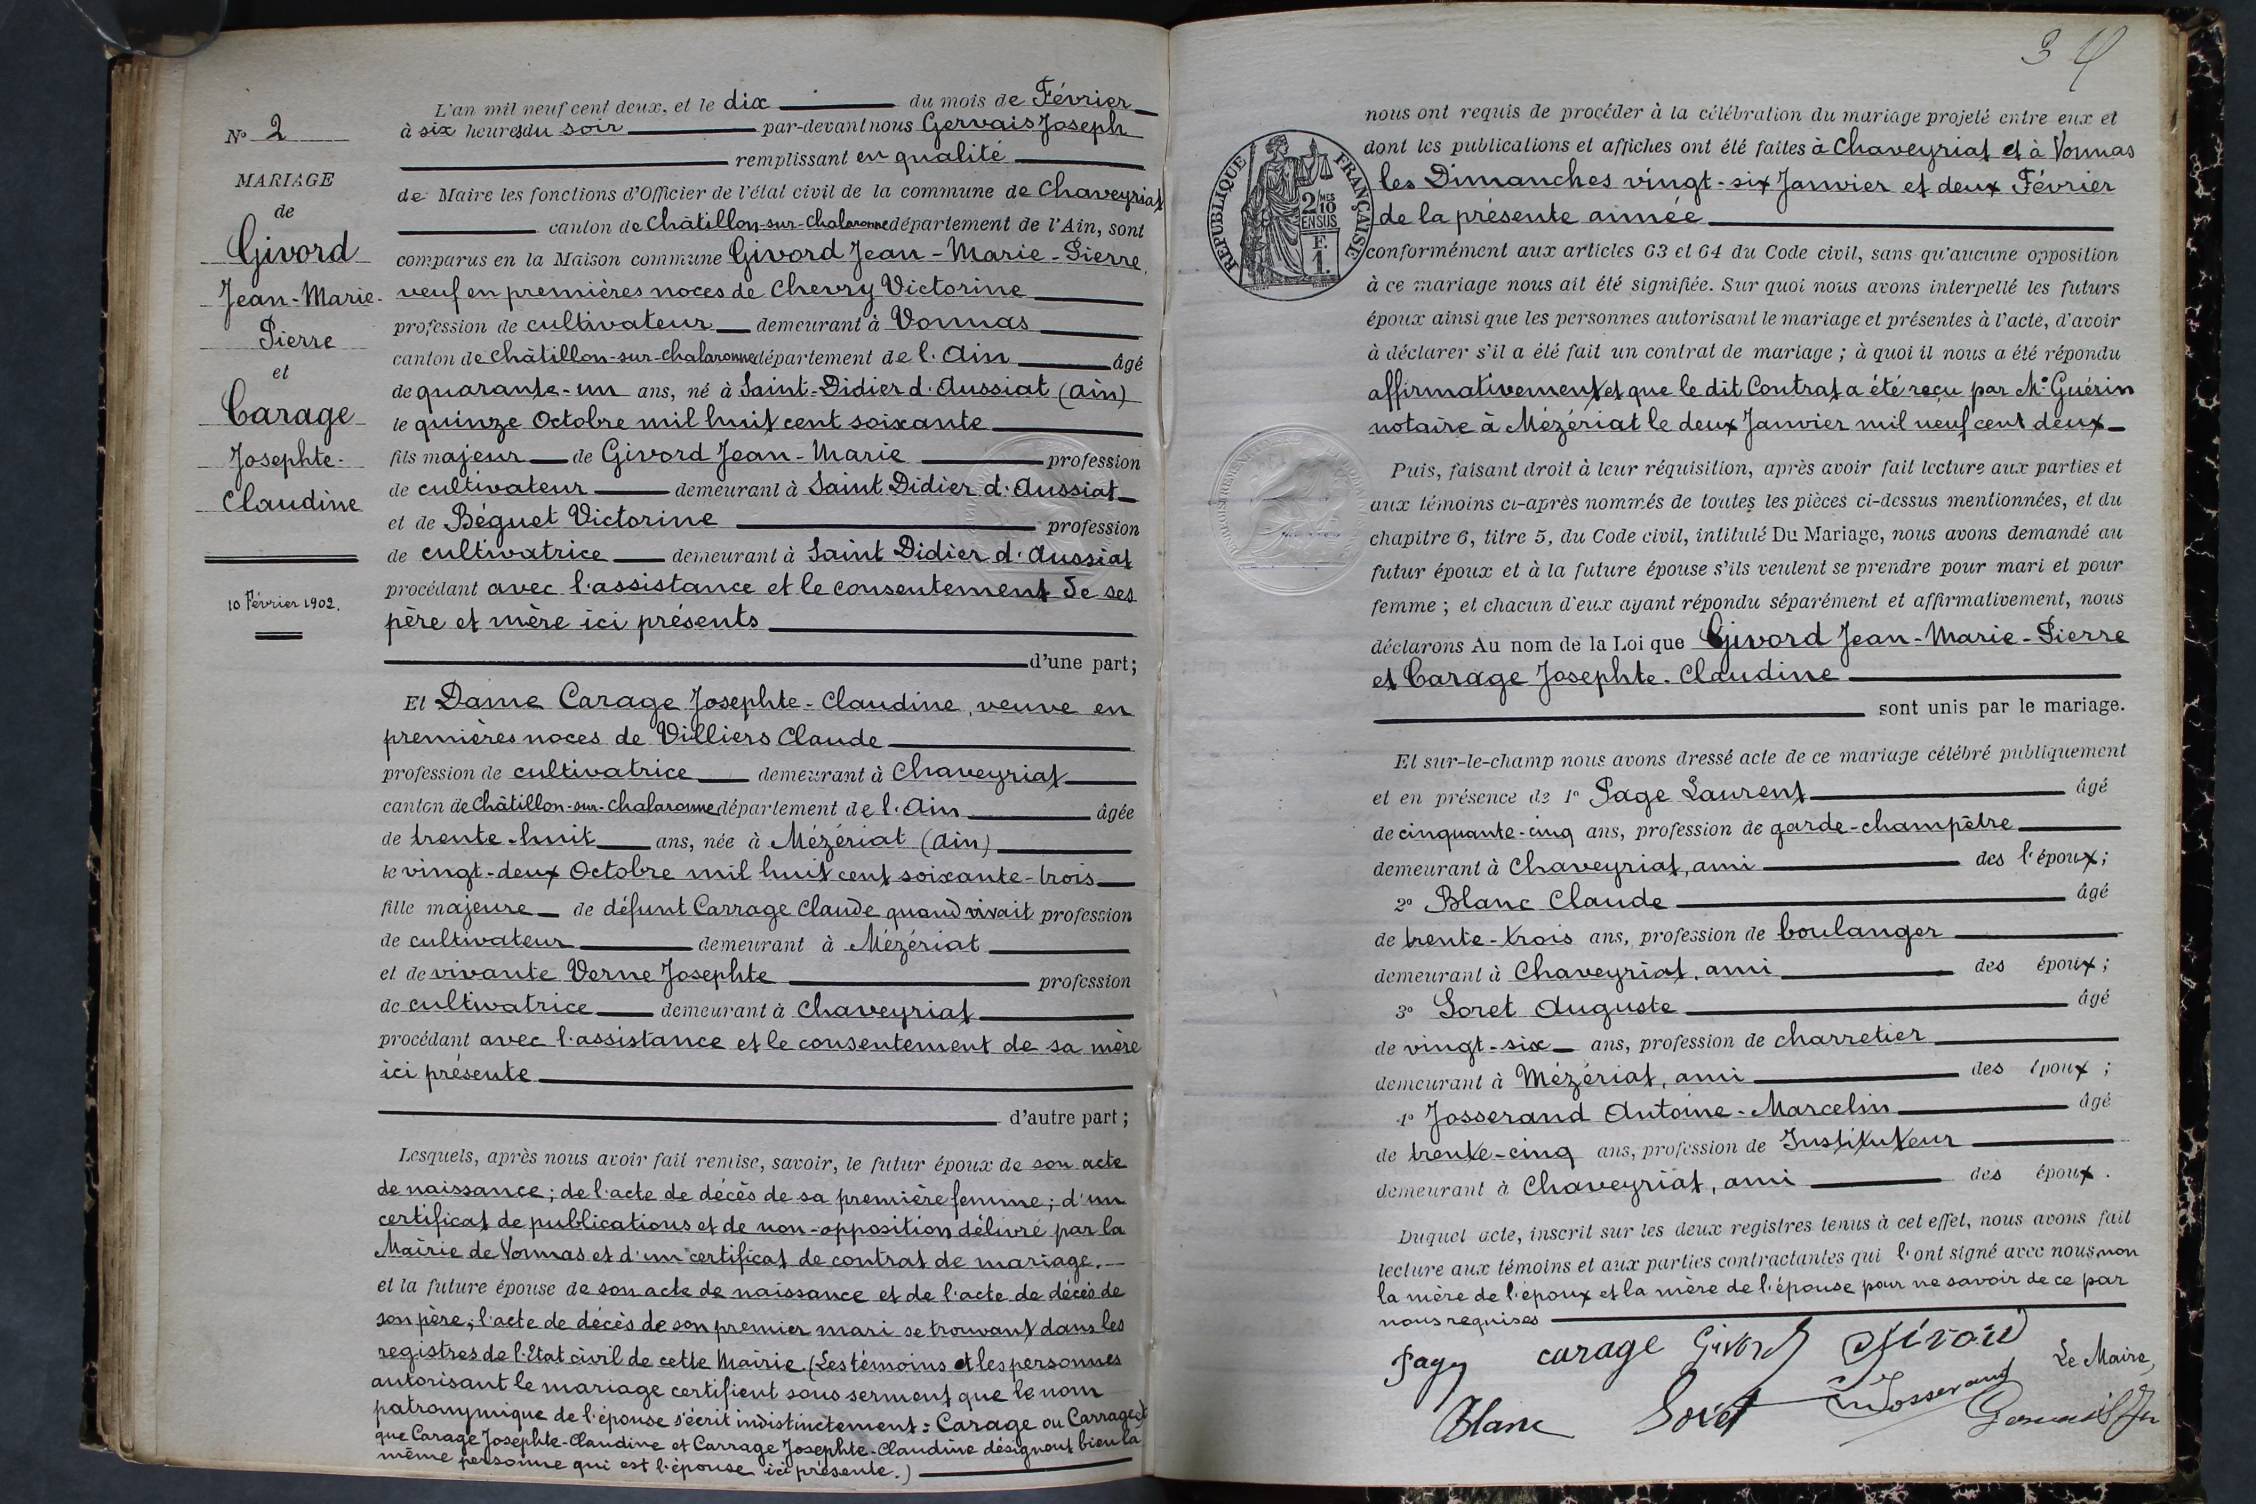 N° 2
MARIAGE
de
Givord
Jean-Marie-
Pierre
et
Carage
Josephte-
Claudine
10 Février 1902.
L'an mil neuf cent deux, et le dix du mois de Février
à six heures du soir par-devant nous Gervais Joseph
remplissant en qualité
de Maire les fonctions d'Officier de l'état civil de la commune de Chaveyriat
canton de Châtillon-sur-Chalaronne département de l'Ain, sont
comparus en la Maison commune Givord Jean-Marie-Pierre,
veuf en premières noces de Chevry Victorine
profession de cultivateur demeurant à Vonnas
canton de Châtillon-sur-Chalaronne département de l'Ain âgé
de quarante-un ans, né à Saint-Didier d'Aussiat (Ain)
le quinze Octobre mil huit cent soixante
fils majeur de Givord Jean-Marie profession
de cultivateur demeurant à Saint Didier d'Aussiat
et de Béguet Victorine profession
de cultivatrice demeurant à Saint Didier d'Aussiat
procédant avec l'assistance et le consentement de ses
père et mère ici présents
d'une part;
Et Dame Carage Josephte-Claudine, veuve en
premières noces de Villiers Claude
profession de cultivatrice demeurant à Chaveyriat
canton de Châtillon-sur-Chalaronne département de l'Ain âgée
de trente-huit ans, née à Mézériat (Ain)
le vingt-deux Octobre mil huit cent soixante-trois
fille majeure de défunt Carrage Claude quand vivait profession
de cultivateur demeurant à Mézériat
et de vivante Verne Josephte profession
de cultivatrice demeurant à Chaveyriat
procédant avec l'assistance et le consentement de sa mère
ici présente
d'autre part;
Lesquels, après nous avoir fait remise, savoir, le futur époux de son acte
de naissance; de l'acte de décès de sa première femme; d'un
certificat de publications et de non-opposition délivré par la
Mairie de Vonnas et d'un certificat de contrat de mariage.
et la future épouse de son acte de naissance et de l'acte de décès de
son père; l'acte de décès de son premier mari se trouvant dans les
registres de l'Etat civil de cette Mairie (Les témoins et les personnes
autorisant le mariage certifient sous serment que le nom
patronymique de l'épouse s'écrit indistinctement: Carage ou Carrage et
que Carage Josephte-Claudine et Carrage Josephte-Claudine désignent bien la
même personne qui est l'épouse ici présente.)
3
RÉPUBLIQUE FRANÇAISE
2/10MES
EN SUS
F.
1.
nous ont requis de procéder à la célébration du mariage projeté entre eux et
dont les publications et affiches ont été faites à Chaveyriat et à Vonnas
les Dimanches vingt-six Janvier et deux Février
de la présente année
conformément aux articles 63 et 64 du Code civil, sans qu'aucune opposition
à ce mariage nous ait été signifiée. Sur quoi nous avons interpellé les futurs
époux ainsi que les personnes autorisant le mariage et présentes à l'acte, d'avoir
à déclarer s'il a été fait un contrat de mariage; à quoi il nous a été répondu
affirmativement et que le dit Contrat a été reçu par Me Guérin
notaire à Mézériat le deux Janvier mil neuf cent deux
Puis, faisant droit à leur réquisition, après avoir fait lecture aux parties et
aux témoins ci-après nommés de toutes les pièces ci-dessus mentionnées, et du
chapitre 6, titre 5, du Code civil, intitulé Du Mariage, nous avons demandé au
futur époux et à la future épouse s'ils veulent se prendre pour mari et pour
femme; et chacun d'eux ayant répondu séparément et affirmativement, nous
déclarons Au nom de la Loi que Givord Jean-Marie-Pierre
et Carage Josephte-Claudine
sont unis par le mariage.
Et sur-le-champ nous avons dressé acte de ce mariage célébré publiquement
et en présence de 1° Page Laurent âgé
de cinquante-cinq ans, profession de garde-champêtre
demeurant à Chaveyriat, ami des l'époux;
2° Blanc Claude âgé
de trente-trois ans, profession de boulanger
demeurant à Chaveyriat, ami des époux;
3° Soret Auguste âgé
de vingt-six ans, profession de charretier
demeurant à Mézériat, ami des époux;
4° Josserand Antoine-Marcelin âgé
de trente-cinq ans, profession de Instituteur
demeurant à Chaveyriat, ami des époux.
Duquel acte, inscrit sur les deux registres tenus à cet effet, nous avons fait
lecture aux témoins et aux parties contractantes qui l'ont signé avec nous non
la mère de l'époux et la mère de l'épouse pour ne savoir de ce par
nous requises
Page carage Givord Givord
Le Maire,
Blanc Soret Josserand Gervais Jh